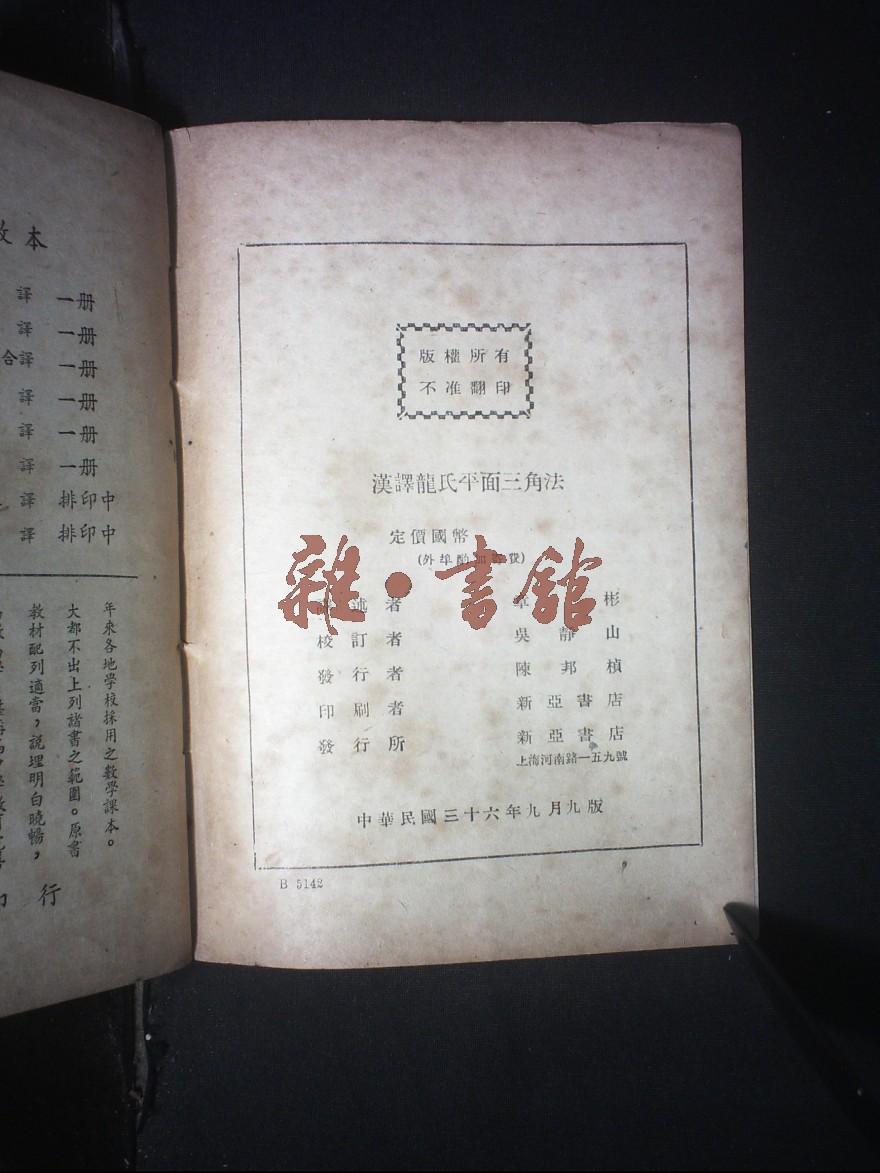 版權所有
不准翻印
漢譯龍氏平面三角法
定價國幣
(外埠酌加寄費)
述者 章彬
校訂者 吳靜山
發行者 陳邦楨
印刷者 新亞書店
發行所 新亞書店
上海河南路一五九號
中華民國三十六年九月九版
B 5142
雜·書館
本
譯 一册
譯 一册
合譯 一册
譯 一册
譯 一册
譯 一册
譯 排印中
譯 排印中
年來各地學校採用之數學課本。
大都不出上列諸書之範圍。原書
教材配列適當，說理明白曉暢，
行